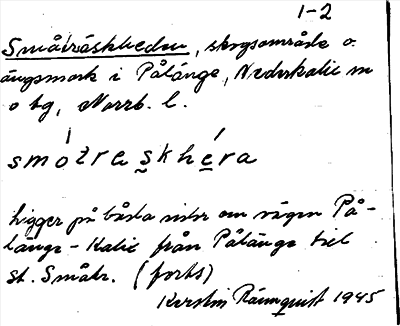 1-2
Småträskheden, skogsområde o.
ängsmark i Pålänge, Nederkalix sn
o tg, Norrb. l.
smótraskhéra
Ligger på båda sidor om vägen På-
länge - Kalix från Pålänge till
St. Småtr. (forts)
Kerstin Rännquist 1945